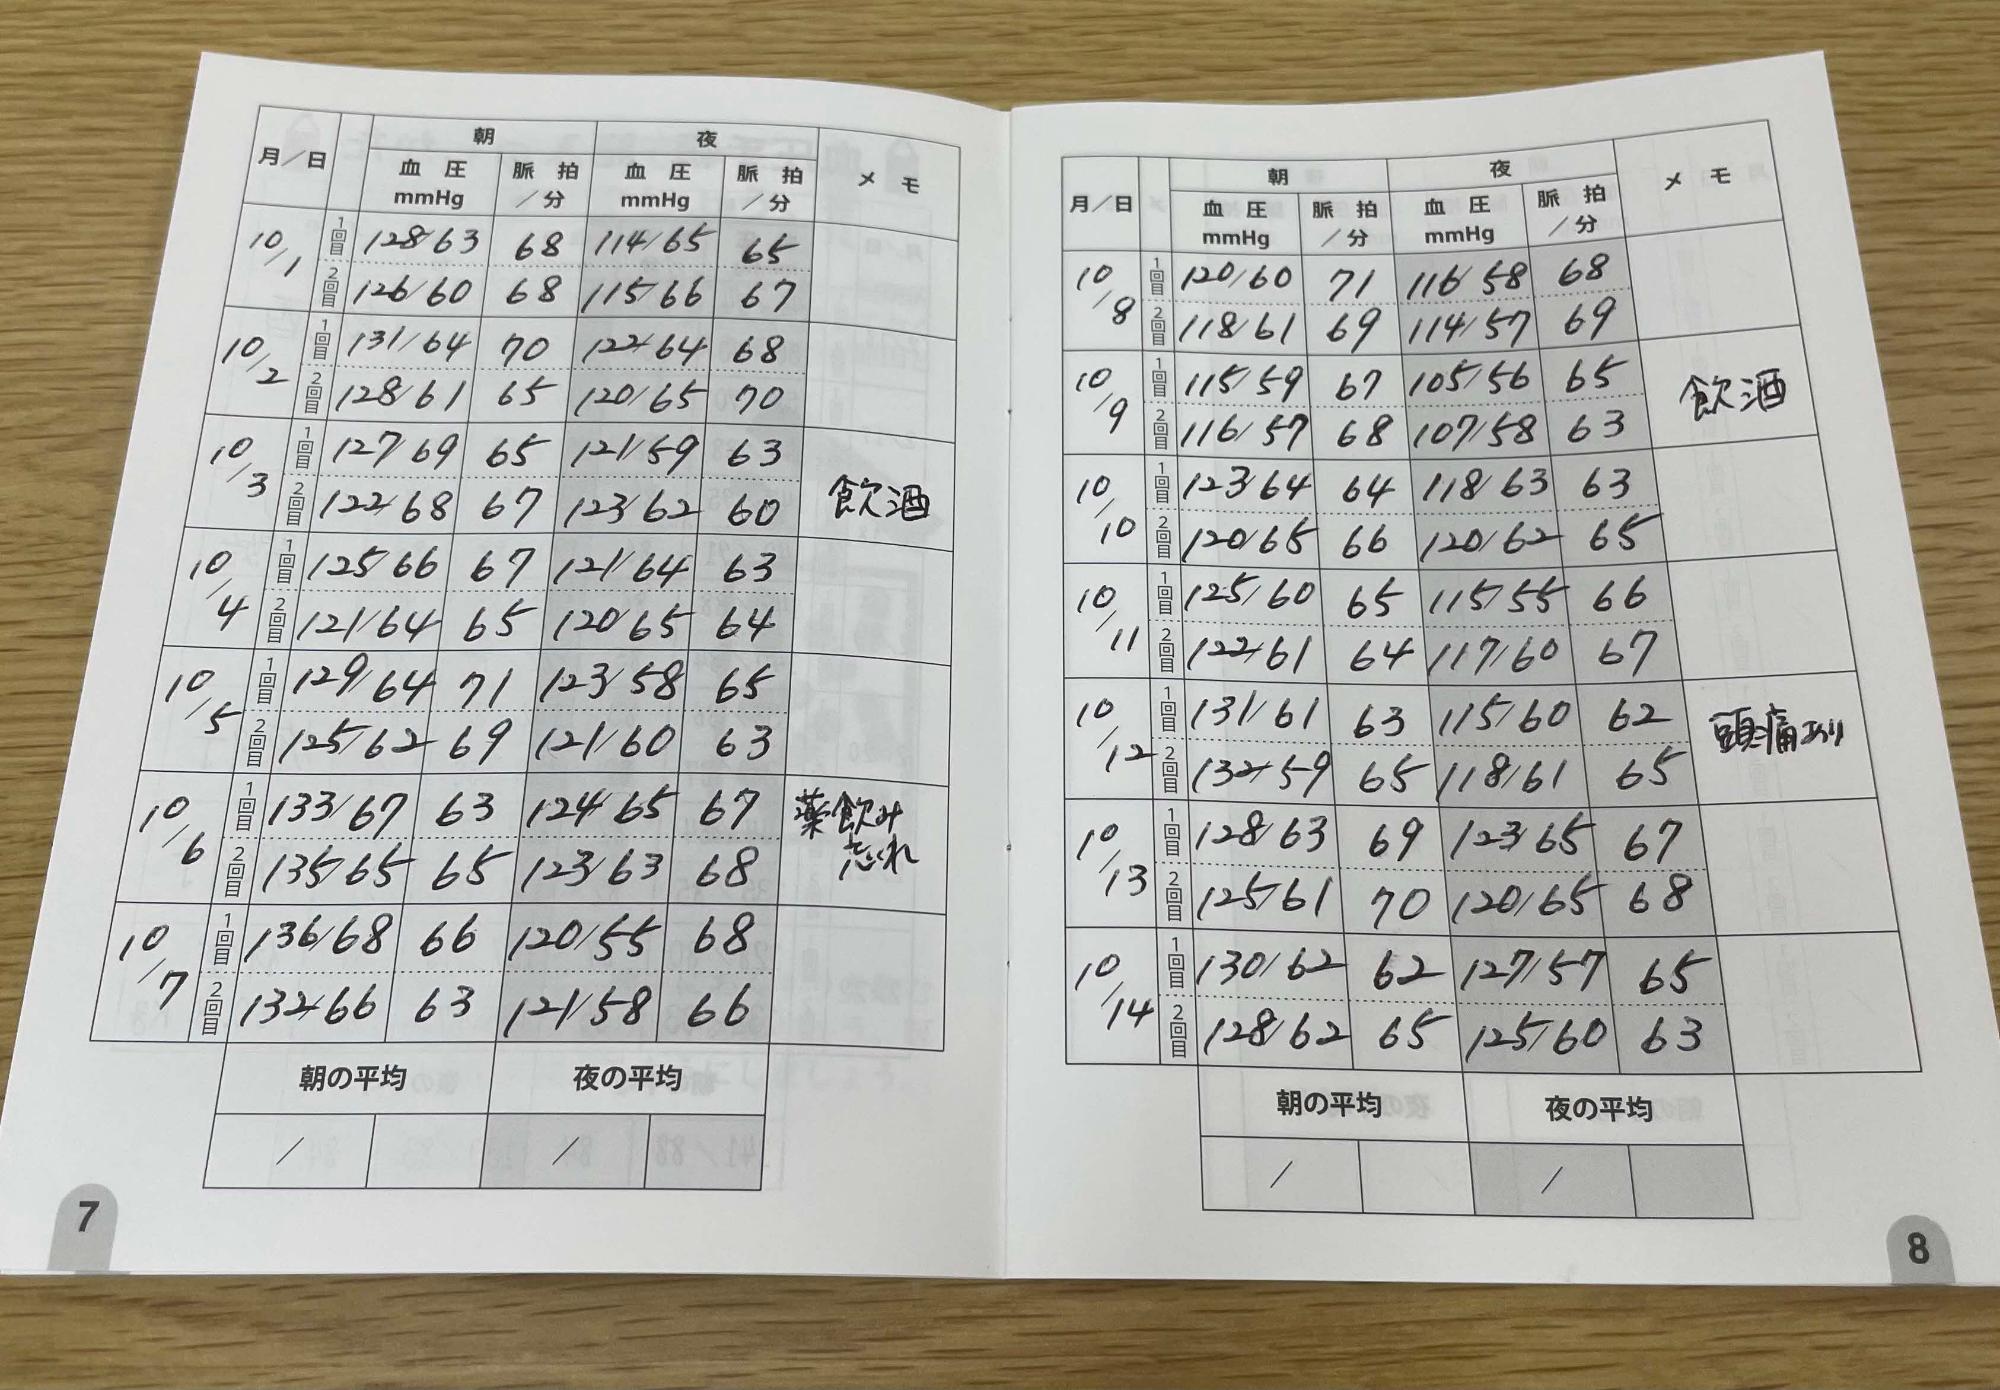 月／日 朝 夜 メモ
血圧 mmHg 脈拍／分 血圧 mmHg 脈拍／分
10/1 1回目 128/63 68 114/65 65
2回目 126/60 68 115/66 67
10/2 1回目 131/64 70 122/64 68
2回目 128/61 65 120/65 70
10/3 1回目 127/69 65 121/59 63 飲酒
2回目 122/68 67 123/62 60
10/4 1回目 125/66 67 121/64 63
2回目 121/64 65 120/65 64
10/5 1回目 129/64 71 123/58 65
2回目 125/62 69 121/60 63
10/6 1回目 133/67 63 124/65 67 薬飲み
2回目 135/65 65 123/63 68 忘れ
10/7 1回目 136/68 66 120/55 68
2回目 132/66 63 121/58 66
朝の平均 夜の平均
／ ／
7
月／日 朝 夜 メモ
血圧 mmHg 脈拍／分 血圧 mmHg 脈拍／分
10/8 1回目 120/60 71 116/58 68
2回目 118/61 69 114/57 69
10/9 1回目 115/59 67 105/56 65 飲酒
2回目 116/57 68 107/58 63
10/10 1回目 123/64 64 118/63 63
2回目 120/65 66 120/62 65
10/11 1回目 125/60 65 115/55 66
2回目 122/61 64 117/60 67
10/12 1回目 131/61 63 115/60 62 頭痛あり
2回目 132/59 65 118/61 65
10/13 1回目 128/63 69 123/65 67
2回目 125/61 70 120/65 68
10/14 1回目 130/62 62 127/57 65
2回目 128/62 65 125/60 63
朝の平均 夜の平均
／ ／
8